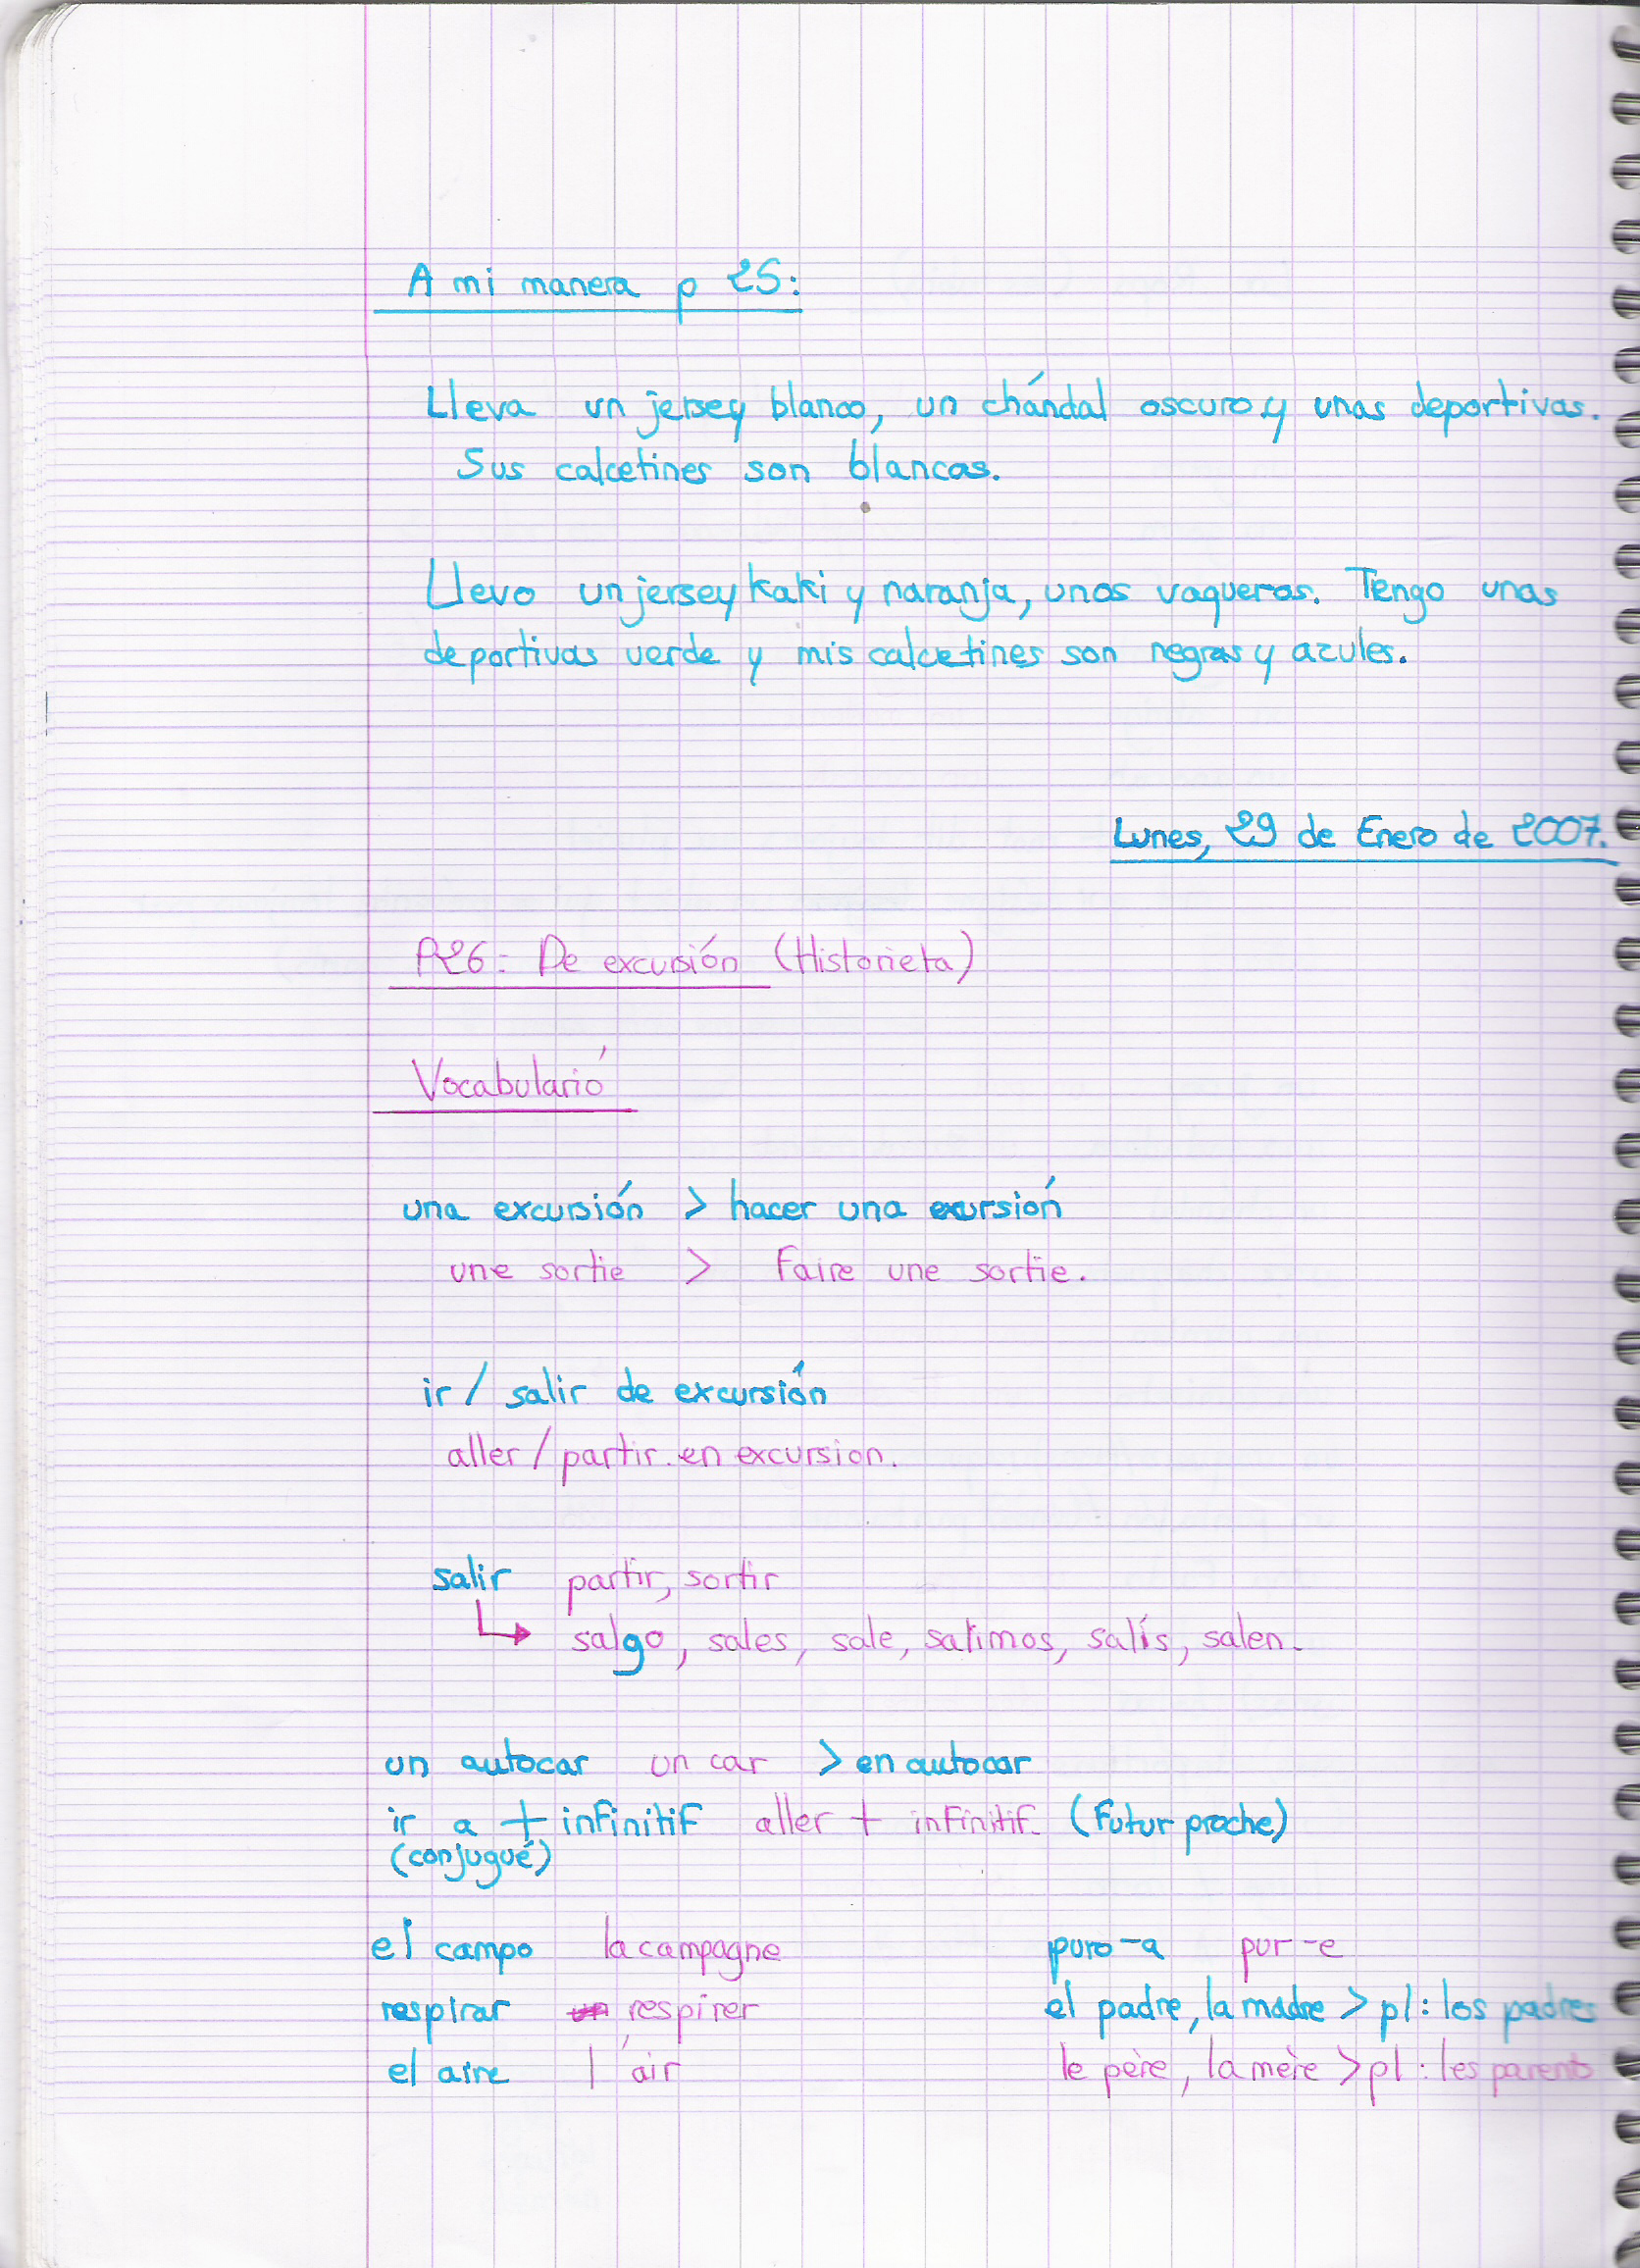 A mi manera p 25:
Lleva un jersey blanco, un chándal oscuro y unas deportivas.
Sus calcetines son blancas.
Llevo un jersey kaki y naranja, unos vaqueros. Tengo unas
deportivas verde y mis calcetines son negras y azules.
Lunes, 29 de Enero de 2007.
P26: De excursión (Historieta)
Vocabularió
una excursión > hacer una exursión
une sortie > Faire une sortie.
ir / salir de excursión
aller / partir en excursion.
salir partir, sortir
salgo, sales, sale, salimos, salís, salen.
un autocar un car > en autocar
ir a + infinitif aller + infinitif. (Futur proche)
(conjugué)
el campo la campagne puro-a pur-e
respirar respirer el padre, la madre > pl: los padres
el aire l'air le père, la mère > pl: les parents